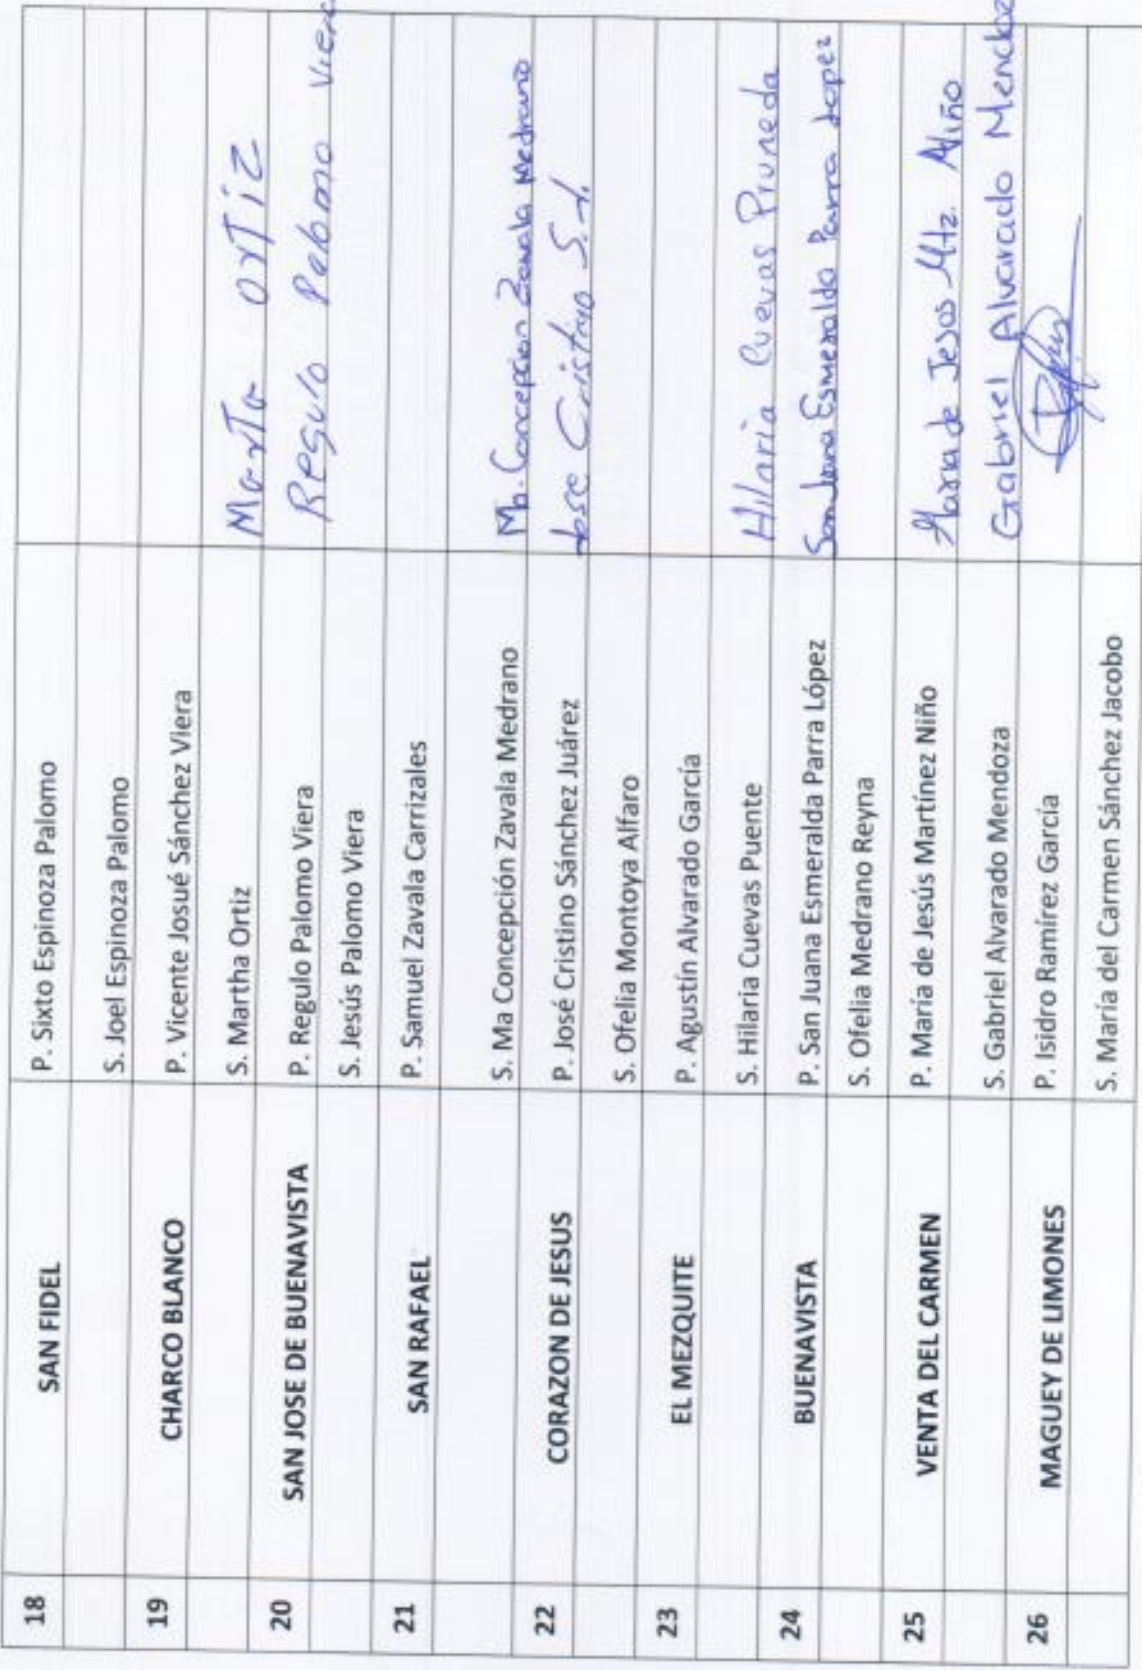 18 SAN FIDEL P. Sixto Espinoza Palomo
S. Joel Espinoza Palomo
19 CHARCO BLANCO P. Vicente Josué Sánchez Viera
S. Martha Ortiz Marta ortiz
20 SAN JOSE DE BUENAVISTA P. Regulo Palomo Viera Regulo Palomo Viera
S. Jesús Palomo Viera
21 SAN RAFAEL P. Samuel Zavala Carrizales
S. Ma Concepción Zavala Medrano Ma. Concepcion Zavala Medrano
22 CORAZON DE JESUS P. José Cristino Sánchez Juárez Jose Cristino S.J.
S. Ofelia Montoya Alfaro
23 EL MEZQUITE P. Agustín Alvarado García
S. Hilaria Cuevas Puente Hilaria Cuevas Pruneda
24 BUENAVISTA P. San Juana Esmeralda Parra López San Juana Esmeralda Parra Lopez
S. Ofelia Medrano Reyna
25 VENTA DEL CARMEN P. María de Jesús Martínez Niño Maria de Jesos Mtz. Niño
S. Gabriel Alvarado Mendoza Gabriel Alvarado Mendoza
26 MAGUEY DE LIMONES P. Isidro Ramírez García
S. María del Carmen Sánchez Jacobo